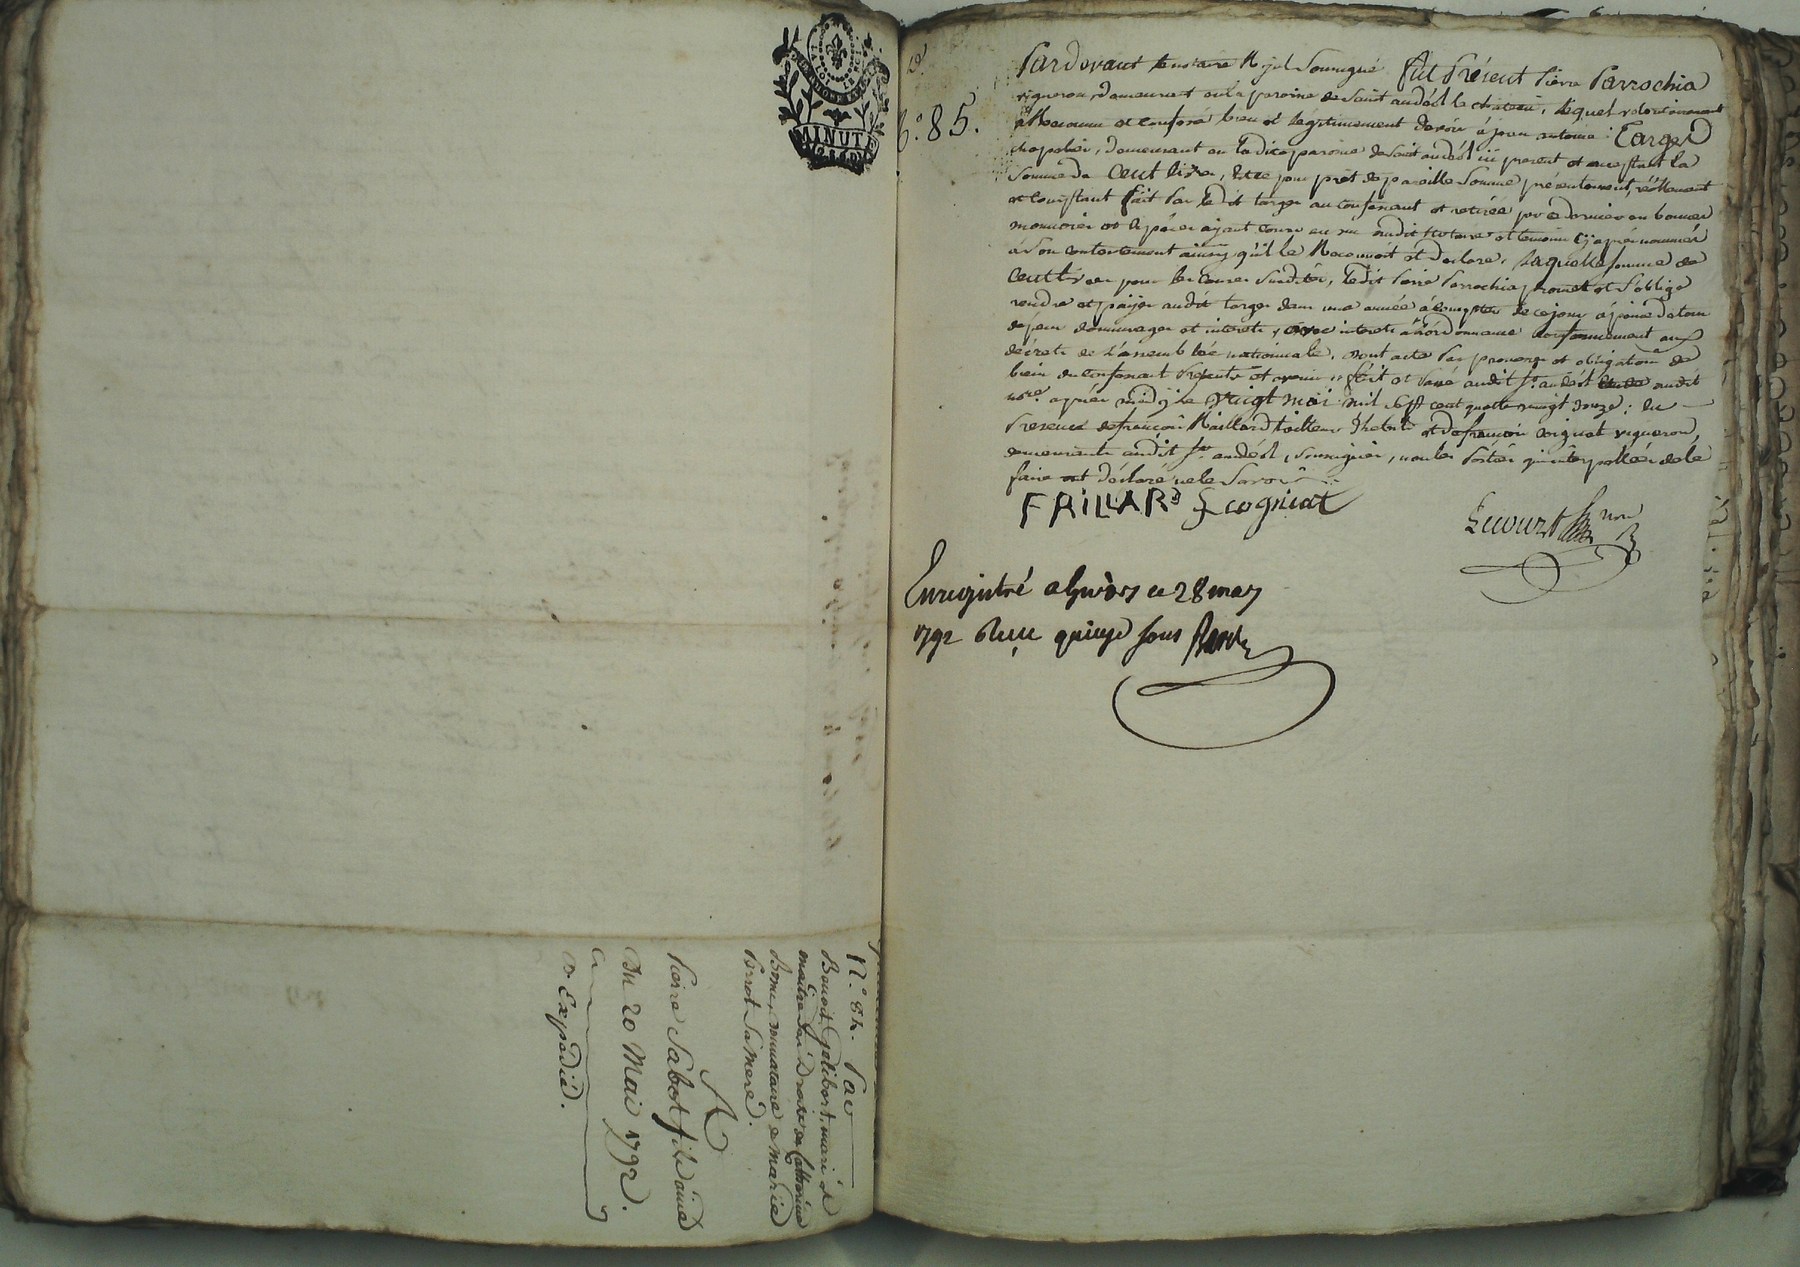 N.° 84. Par
Benoit Gelibert, mari &
maître des Droits de Catherine
Bonne, donataire de Marie
Perrot Sa Mere.
A
Pierre Sabot fils d'aimé
Du 20 Mai 1792.
Expedié.
MINUTE
N.° 85.
Pardevant le notaire Royal Soussigné fut Présent Pierre Parrochia
vigneron, demeurant en la paroisse de Saint andéol le chateau, lequel volontairement
a Reconnu et confessé bien et legitimement devoir à jean antoine Targe
chapelier, demeurant en Ladite paroisse de Saint andéol ici present et acceptant la
Somme de Cent livres, Et ce pour prêt de pareille Somme présentement, réellement
et comptant fait Par Ledit targe au confessant et retirée par ce dernier en bonnes
monnoies et especes ayant cours au vu dudit Notaire et temoins cy après nommés
à Son contentement ainsy qu'il le Reconnoit et declare, Laquelle Somme de
Cent livres pour les causes Susdites, Ledit Pierre Parrochia promet et S'oblige
rendre et payer audit targe dans une année à compter de ce jour à peine de tous
depens dommages et interets, avec interets à l'ordonnance conformement aux
décrets de L'assemblée nationnale. dont acte Par promesse et obligation de
biens du confessant Presents et avenir. fait et Passé audit St. andéol Etude dudit
nore. après midy le vingt mai mil Sept cent quatre vingt douze; En
Presence de françois Raillard tailleur d'habits et de françois cogniat vigneron,
demeurants audit St. andéol, Soussignés, non les Parties qui interpellées de le
faire ont declaré ne le Savoir.
FRILLARD f cogniat
Lecourt nore
Enregistré a Givors ce 28 may
1792 Reçu quinze sous